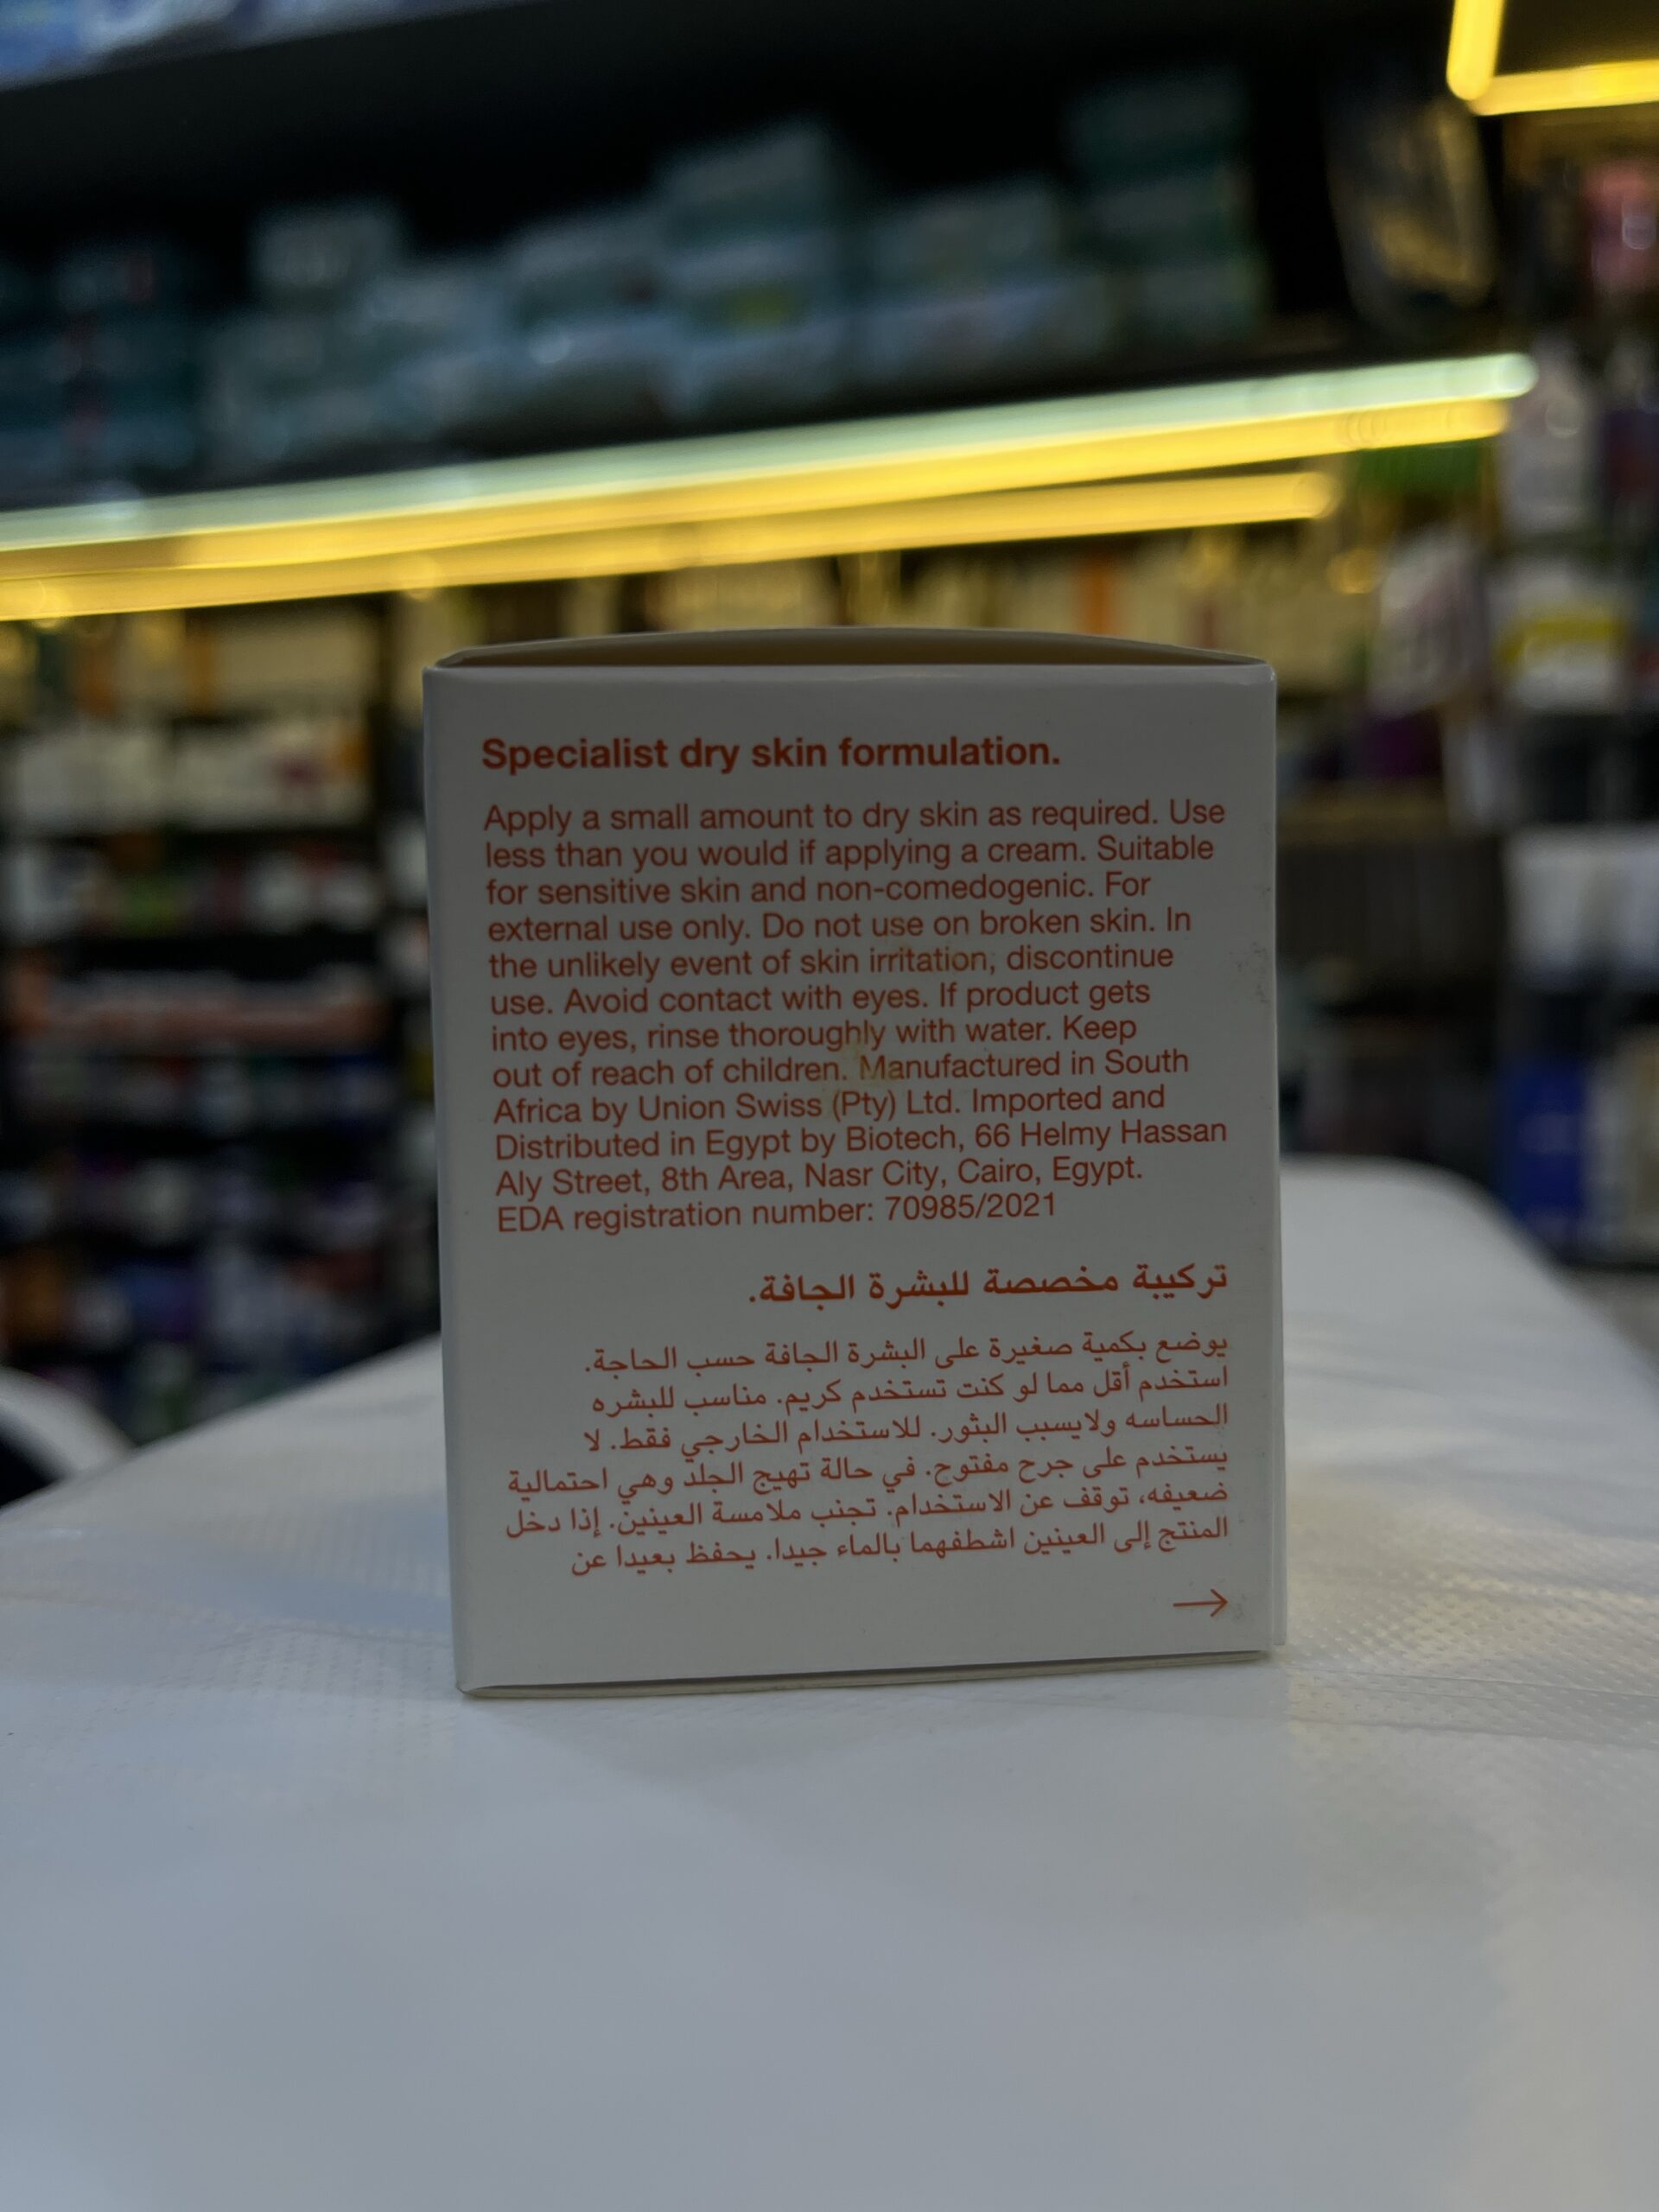 Specialist dry skin formulation.
Apply a small amount to dry skin as required. Use
less than you would if applying a cream. Suitable
for sensitive skin and non-comedogenic. For
external use only. Do not use on broken skin. In
the unlikely event of skin irritation, discontinue
use. Avoid contact with eyes. If product gets
into eyes, rinse thoroughly with water. Keep
out of reach of children. Manufactured in South
Africa by Union Swiss (Pty) Ltd. Imported and
Distributed in Egypt by Biotech, 66 Helmy Hassan
Aly Street, 8th Area, Nasr City, Cairo, Egypt.
EDA registration number: 70985/2021
تركيبة مخصصة للبشرة الجافة.
يوضع بكمية صغيرة على البشرة الجافة حسب الحاجة.
استخدم أقل مما لو كنت تستخدم كريم. مناسب للبشره
الحساسه ولايسبب البثور. للاستخدام الخارجي فقط. لا
يستخدم على جرح مفتوح. في حالة تهيج الجلد وهي احتمالية
ضعيفه، توقف عن الاستخدام. تجنب ملامسة العينين. إذا دخل
المنتج إلى العينين اشطفهما بالماء جيدا. يحفظ بعيدا عن
→